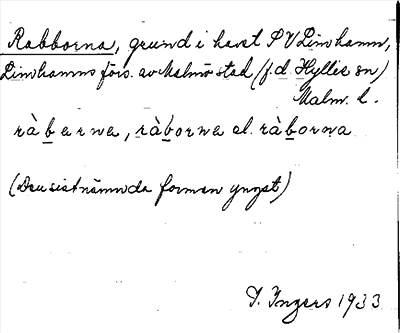 Rabborna, grund i havet S V Limhamn,
Limhamns förs. av Malmö stad (f.d. Hyllie sn)
Malm. l.
ràbarna, ràborna el. ràborna
(Den sistnämnda formen yngst)
I. Ingers 1933